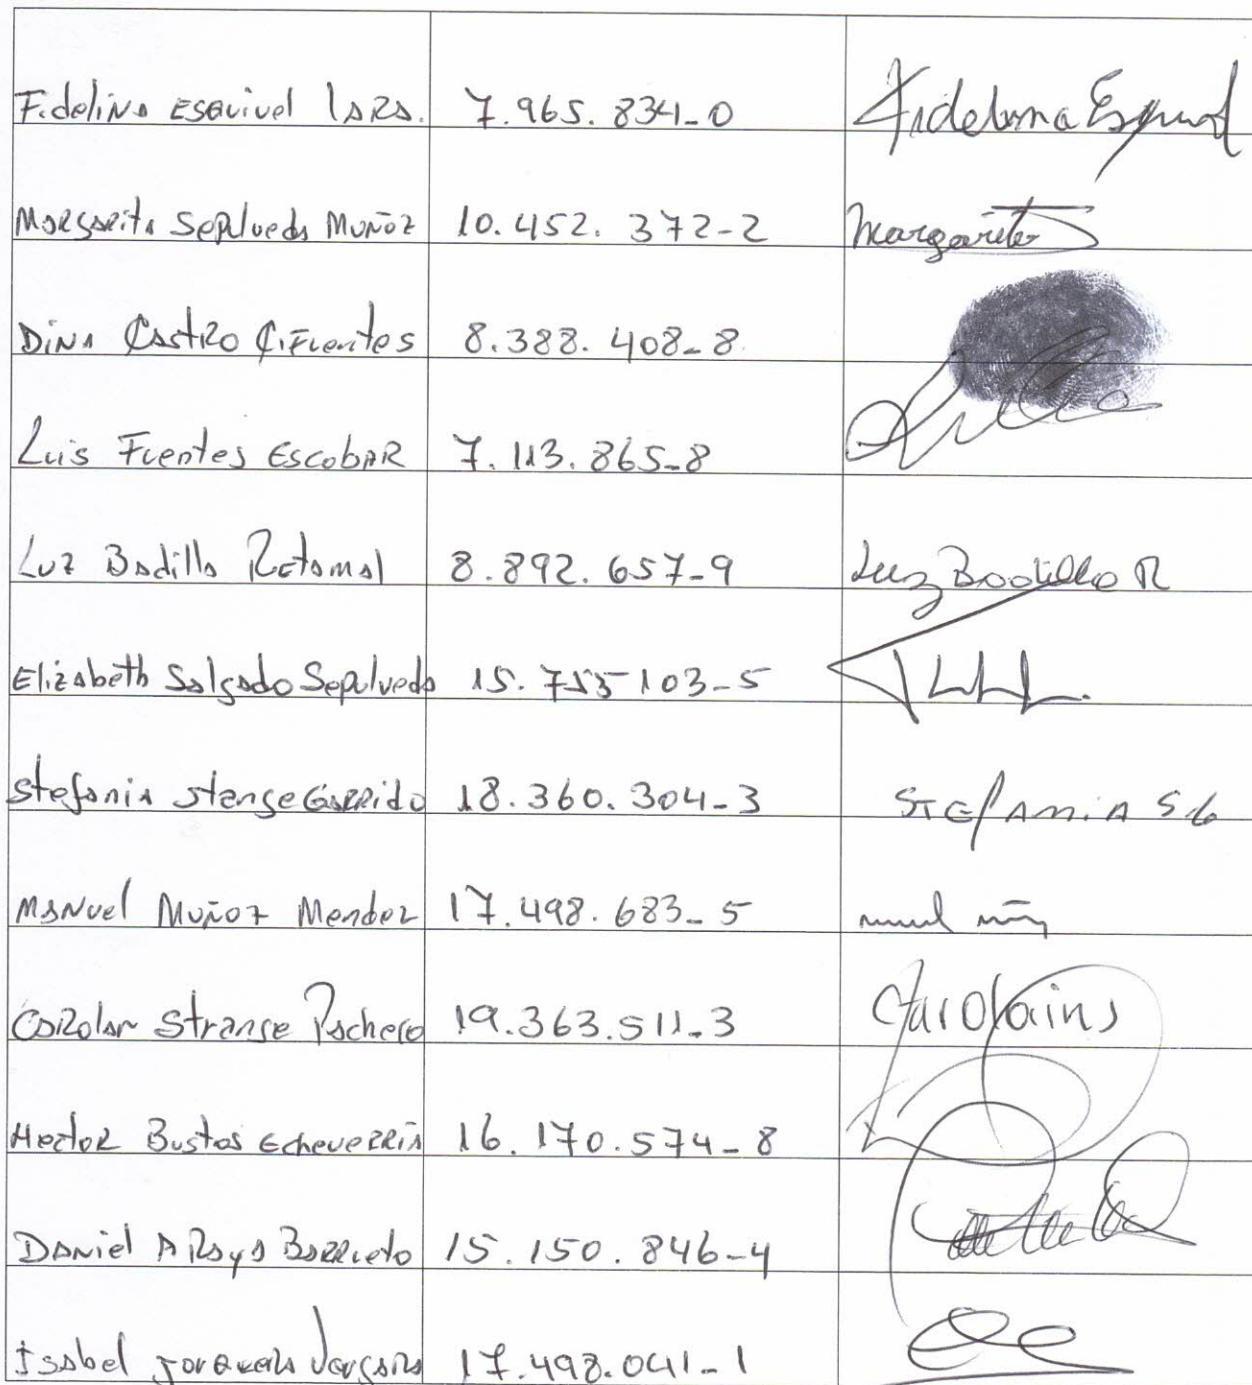 Fidelina Esquivel Lara. 7.965.834-0 Fidelima Esquivel
Margarita Sepulveda Muñoz 10.452.372-2 Margarita
Dina Castro Cifuentes 8.388.408-8
Luis Fuentes Escobar 7.113.865-8
Luz Badilla Retamal 8.892.657-9 Luz Badilla R
Elizabeth Salgado Sepulveda 15.755103-5
Stefania Stange Garrido 18.360.304-3 STEfAniA SG
Manuel Muñoz Mendez 17.498.683-5
Strange Pacheco 19.363.511-3
Hector Bustos Echeverria 16.170.574-8
Daniel Araya Barrieto 15.150.846-4
Isabel Vergara 17.498.041-1